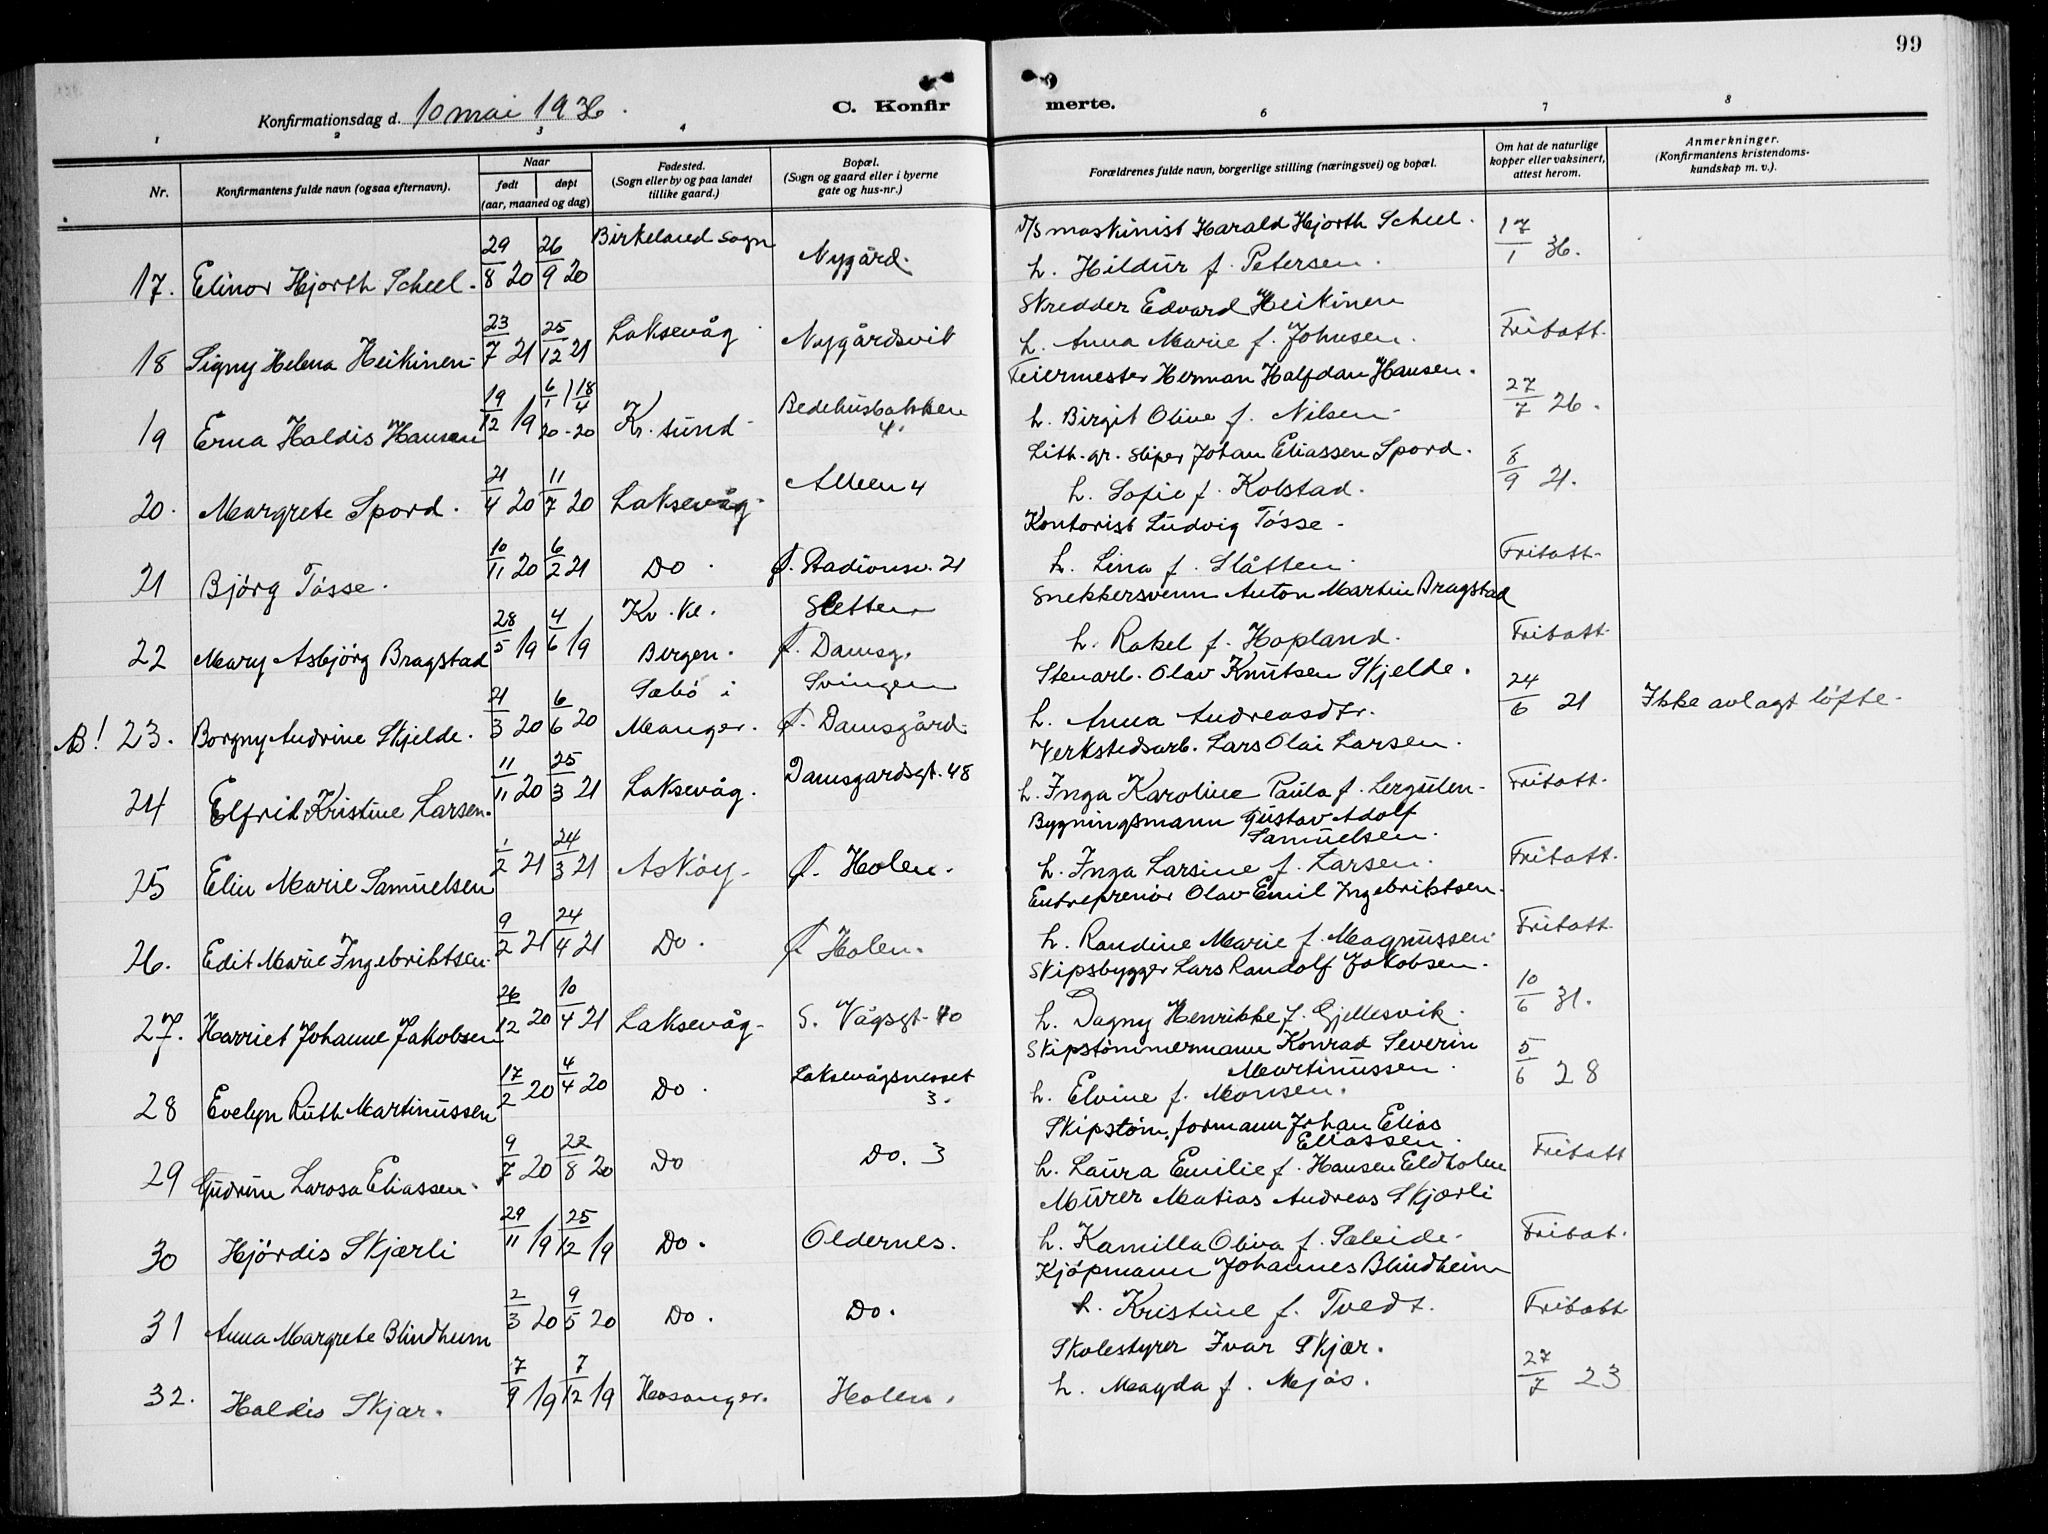 99
Konfirmationsdag d. 10 mai 1936.
C. Konfirmerte.
1 2 3 4 6 7 8
Nr.
Konfirmantens fulde navn (ogsaa efternavn).
Naar
født døpt
(aar, maaned og dag)
Fødested.
(Sogn eller by og paa landet
tillike gaard.)
Bopæl.
(Sogn og gaard eller i byerne
gate og hus-nr.)
Forældrenes fulde navn, borgerlige stilling (næringsvei) og bopæl.
Om hat de naturlige
kopper eller vaksinert,
attest herom.
Anmerkninger.
(Konfirmantens kristendoms-
kundskap m. v.).
17. Elinor Hjorth Scheel. 29/8 20 26/9 20 Birkeland sogn Nygård.
D/S maskinist Harald Hjorth Scheel.
h. Hildur f. Petersen. 17/1 36.
18 Signy Helena Heikinen 23/7 21 25/12 21 Laksevåg Nygårdsvik
Skredder Edvard Heikinen
h. Anna Marie f. Johnsen. Fritatt.
19 Erna Haldis Hansen 19/12 19 6/1 20 - 18/4 20 Kr. sund Bedehusbakken 4.
Feiermester Herman Halfdan Hansen.
h. Birgit Olive f. Nilsen 27/7 26.
20. Margrete Spord. 21/4 20 11/7 20 Laksevåg. Alleen 4
Lith. gr. sliper Johan Eliassen Spord.
h. Sofie f. Kolstad. 8/9 21.
21 Bjørg Tøsse. 10/11 20 6/2 21 Do. f. Stadionsv. 21
Kontorist Ludvig Tøsse.
h. Lina f. Slåtten. Fritatt.
22 Mary Asbjørg Bragstad 28/5 19 4/6 19 Kr. Kl. Bergen. Sletten f. Damsg.
Snekkersvenn Anton Martin Bragstad
h. Rakel f. Hopland. Fritatt.
B! 23. Borgny Andrine Skjelde. 21/3 20 6/6 20 Sæbø i Manger. Svingen f. Damsgård.
Stenarb. Olav Knutsen Skjelde.
h. Anna Andreasdtr. 24/6 21 Ikke avlagt løfte.
24 Elfrid Kristine Larsen. 11/11 20 25/3 21 Laksevåg. Damsgardsgt. 48
Verkstedsarb. Lars Olai Larsen.
h. Inga Karoline Paula f. Lergulen Fritatt.
25 Elin Marie Samuelsen 1/2 21 24/3 21 Askøy. f. Holen.
Bygningsmann Gustav Adolf
Samuelsen.
h. Inga Larsine f. Larsen. Fritatt.
26. Edit Marie Ingebriktsen. 9/2 21 24/4 21 Do. f Holen.
Entreprenør Olav Emil Ingebriktsen.
h. Randine Marie f. Magnussen Fritatt.
27. Harriet Johanne Jakobsen 26/12 20 10/4 21 Laksevåg. S. Vågsgt. 40
Skipsbygger Lars Randolf Jakobsen.
h. Dagny Henrikke f. Gjellesvik. 10/6 31.
28 Evelyn Ruth Martinussen 17/2 20 4/4 20 Do. Laksevågsnesset 3.
Skipstømmermann Konrad Severin
Martinussen.
h. Elvine f. Monsen. 5/6 28
29 Gudrun Larosa Eliassen. 9/7 20 22/8 20 Do Do. 3
Skipstøm. formann Johan Elias
Eliassen.
h. Laura Emilie f. Hansen Eldholm Fritatt
30 Hjørdis Skjærli 29/11 19 25/12 19 Do. Oldernes.
Murer Matias Andreas Skjærli
h. Kamilla Oliva f. Sæleide. Fritat.
31 Anna Margrete Blindheim 2/3 20 9/5 20 Do. Do.
Kjøpmann Johannes Blindheim
h. Kristine f. Tvedt. Fritatt
32. Haldis Skjær. 7/9 19 7/12 19 Hosanger. Holen.
Skolestyrer Ivar Skjær.
h. Magda f. Mjøs. 27/7 23